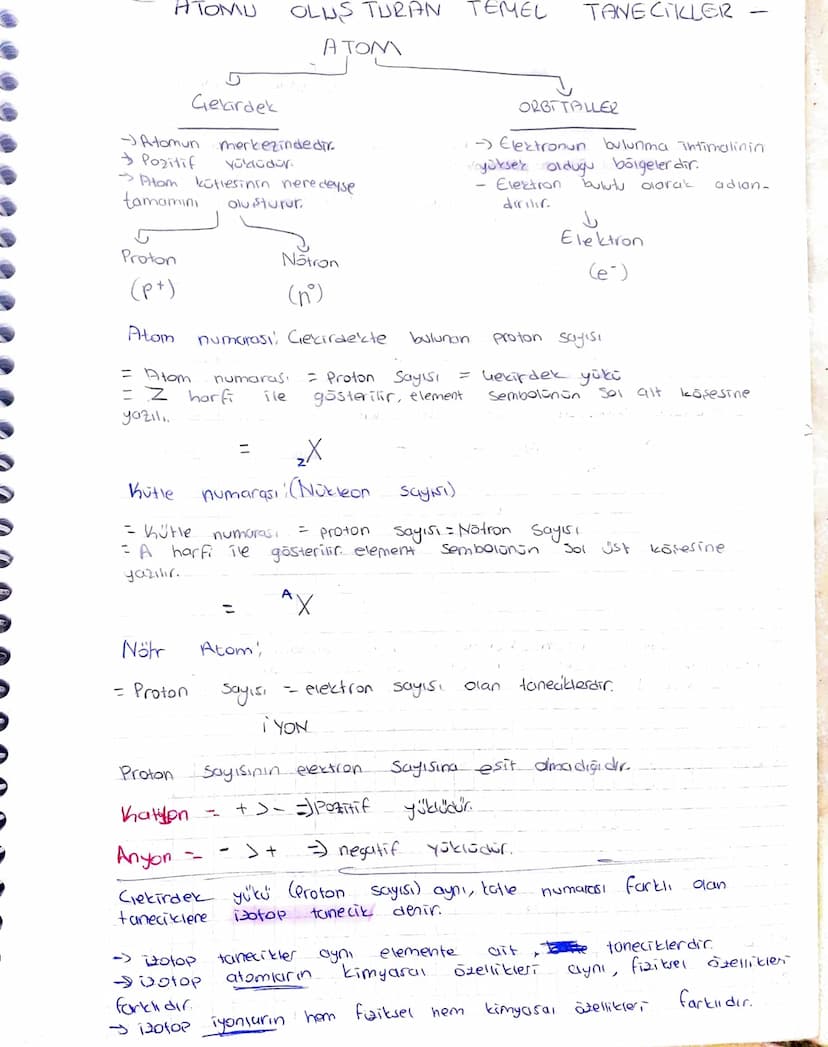 ATOMU OLUŞTURAN TEMEL TANECİKLER -
ATOM
Çekirdek
ORBİTALLER
-> Atomun merkezindedir.
-> Pozitif yüklüdür.
-> Atom kütlesinin neredeyse
tamamını oluşturur.
-> Elektronun bulunma ihtimalinin
yüksek olduğu bölgelerdir.
- Elektron bulutu olarak adlan-
dırılır.
Elektron
(e⁻)
Proton
(p+)
Nötron
(n⁰)
Atom numarası: Çekirdekte bulunan proton sayısı
= Atom numarası = Proton Sayısı = Çekirdek yükü
= Z harfi ile gösterilir, element sembolünün sol alt köşesine
yazılı.
= zX
Kütle numarası: (Nükleon sayısı)
= Kütle numarası = proton sayısı = Nötron sayısı
= A harfi ile gösterilir. element sembolünün sol üst köşesine
yazılır.
= ᴬX
Nötr Atom;
= Proton sayısı = elektron sayısı olan taneciklerdir.
İYON
Proton sayısının elektron sayısına eşit olmadığıdır.
Katyon = + > - => Pozitif yüklüdür.
Anyon = - > + => negatif yüklüdür.
Çekirdek yükü (Proton sayısı) aynı, kütle numarası farklı olan
taneciklere izotop tanecik denir.
-> izotop tanecikler aynı elemente ait, taneciklerdir.
-> izotop atomların kimyasal özellikleri aynı, fiziksel özellikleri
farklıdır.
-> izotop iyonların hem fiziksel hem kimyasal özellikleri farklıdır.